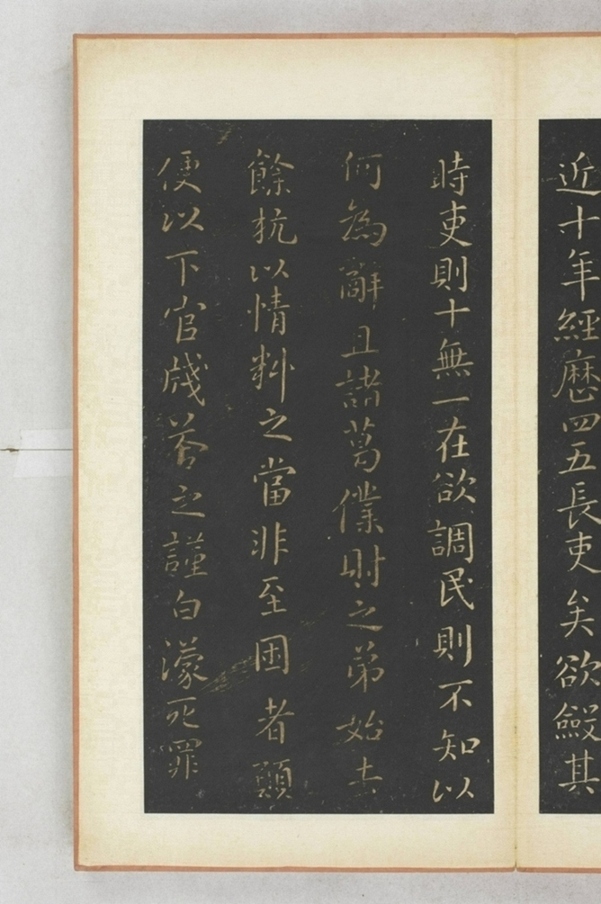 近十年經歷四五長吏矣欲斂其
時吏則十無一在欲調民則不知以
何為辭且諸葛僕射之弟始去
餘杭以情料之當非至困者願
便以下官牋答之謹白濛死罪